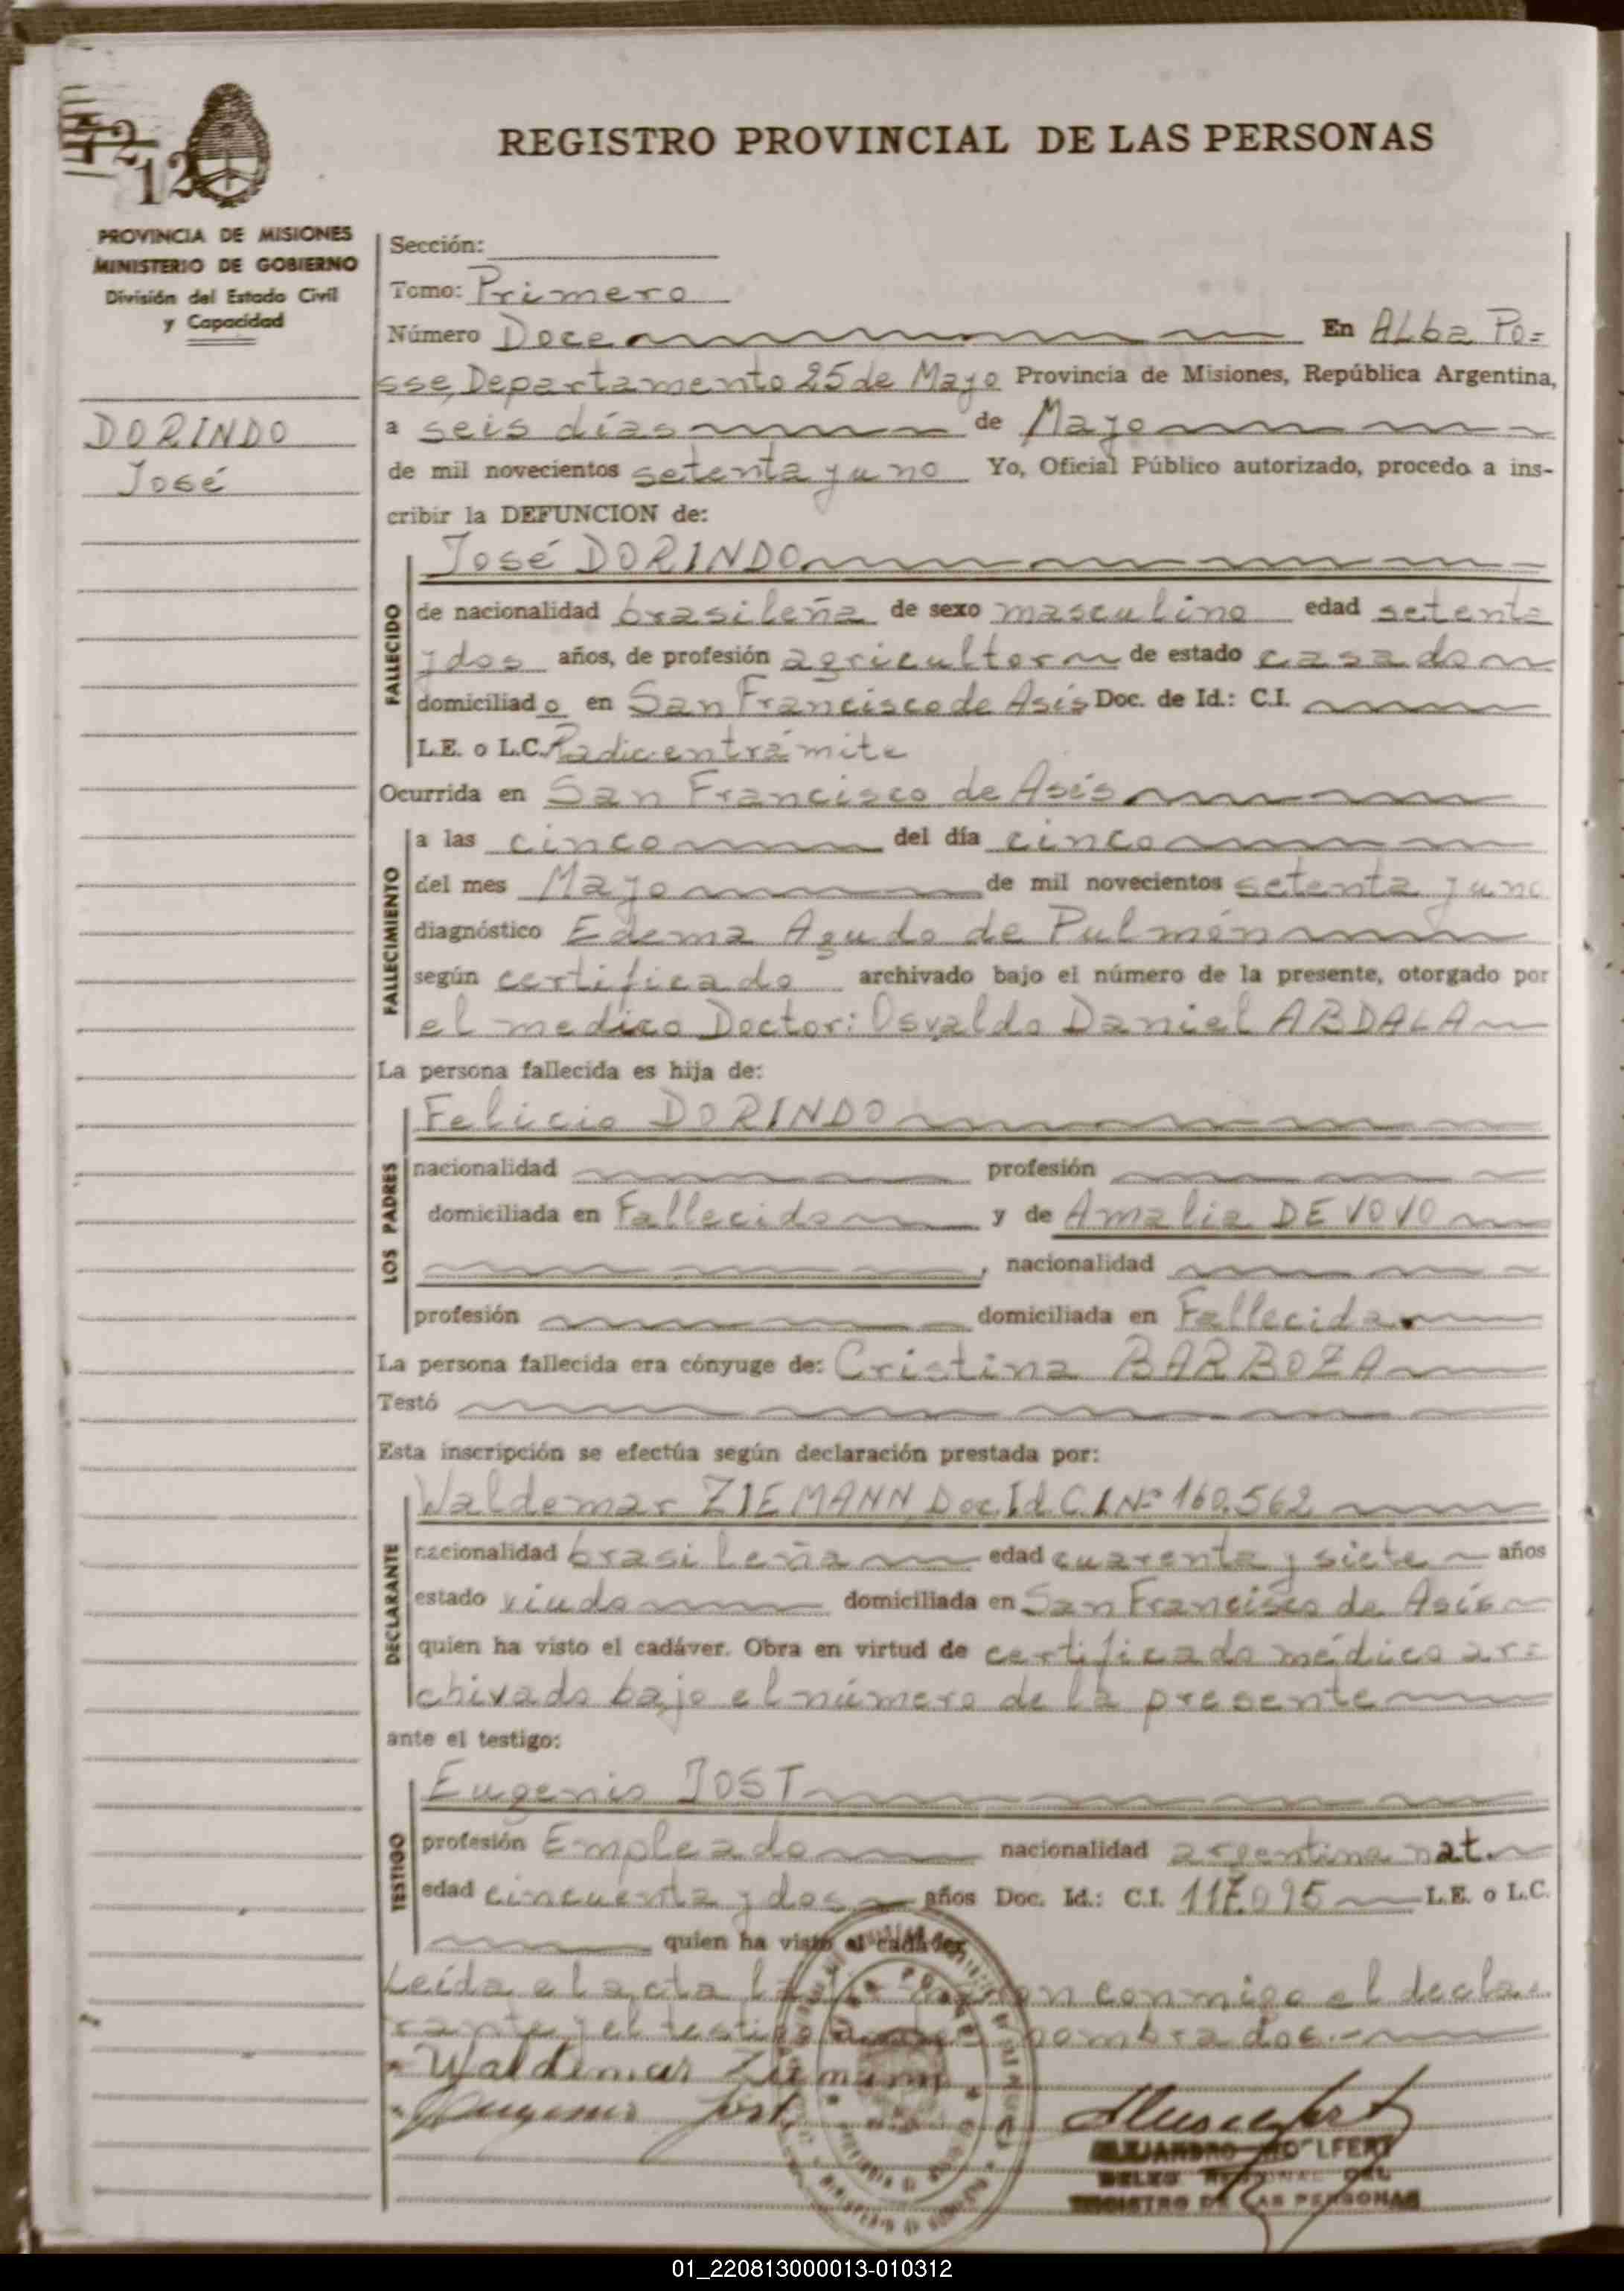 12
12
REGISTRO PROVINCIAL DE LAS PERSONAS
PROVINCIA DE MISIONES
MINISTERIO DE GOBIERNO
División del Estado Civil
y Capacidad
DORINDO
José
Sección:
Tomo: Primero
Número Doce En Alba Po=
sse, Departamento 25 de Mayo Provincia de Misiones, República Argentina,
a seis días de Mayo
de mil novecientos setenta y uno Yo, Oficial Público autorizado, procedo a ins-
cribir la DEFUNCION de:
José DORINDO
FALLECIDO
de nacionalidad brasileña de sexo masculino edad setenta
y dos años, de profesión agricultor de estado casado
domiciliado en San Francisco de Asís Doc. de Id.: C.I.
L.E. o L.C. Radic. en trámite
Ocurrida en San Francisco de Asís
FALLECIMIENTO
a las cinco del día cinco
del mes Mayo de mil novecientos setenta y uno
diagnóstico Edema Agudo de Pulmón
según certificado archivado bajo el número de la presente, otorgado por
el medico Doctor: Osvaldo Daniel ABDALA
La persona fallecida es hija de:
Felicio DORINDO
LOS PADRES
nacionalidad profesión
domiciliada en Fallecido y de Amalia DE VOVO
, nacionalidad
profesión domiciliada en Fallecida
La persona fallecida era cónyuge de: Cristina BARBOZA
Testó
Esta inscripción se efectúa según declaración prestada por:
Waldemar ZIEMANN, Doc. Id. C.I Nº 160.562
DECLARANTE
nacionalidad brasileña edad cuarenta y siete años
estado viudo domiciliada en San Francisco de Asís
quien ha visto el cadáver. Obra en virtud de certificado médico ar=
chivado bajo el número de la presente
ante el testigo:
Eugenio JOST
TESTIGO
profesión Empleado nacionalidad argentina nat.
edad cincuenta y dos años Doc. Id.: C.I. 117.095 L.E. o L.C.
quien ha visto el cadáver
Leída el acta la conmigo el decla=
rante y el testigo nombrados.-
Waldemar Ziemann
Eugenio Jost
ALEJANDRO
REGISTRO DE LAS PERSONAS
01_220813000013-010312